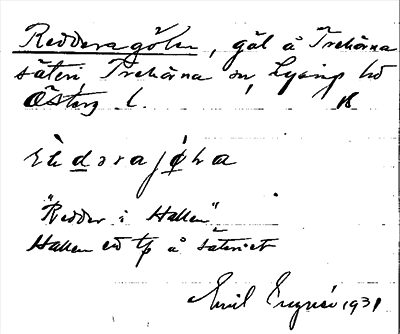 Reddaragölen, göl å Trehörna
säteri, Trehörna sn, Lysings hd
Östergl.
"Redder i Hallen"
Hallen ett tp å säteriet
Emil 1931